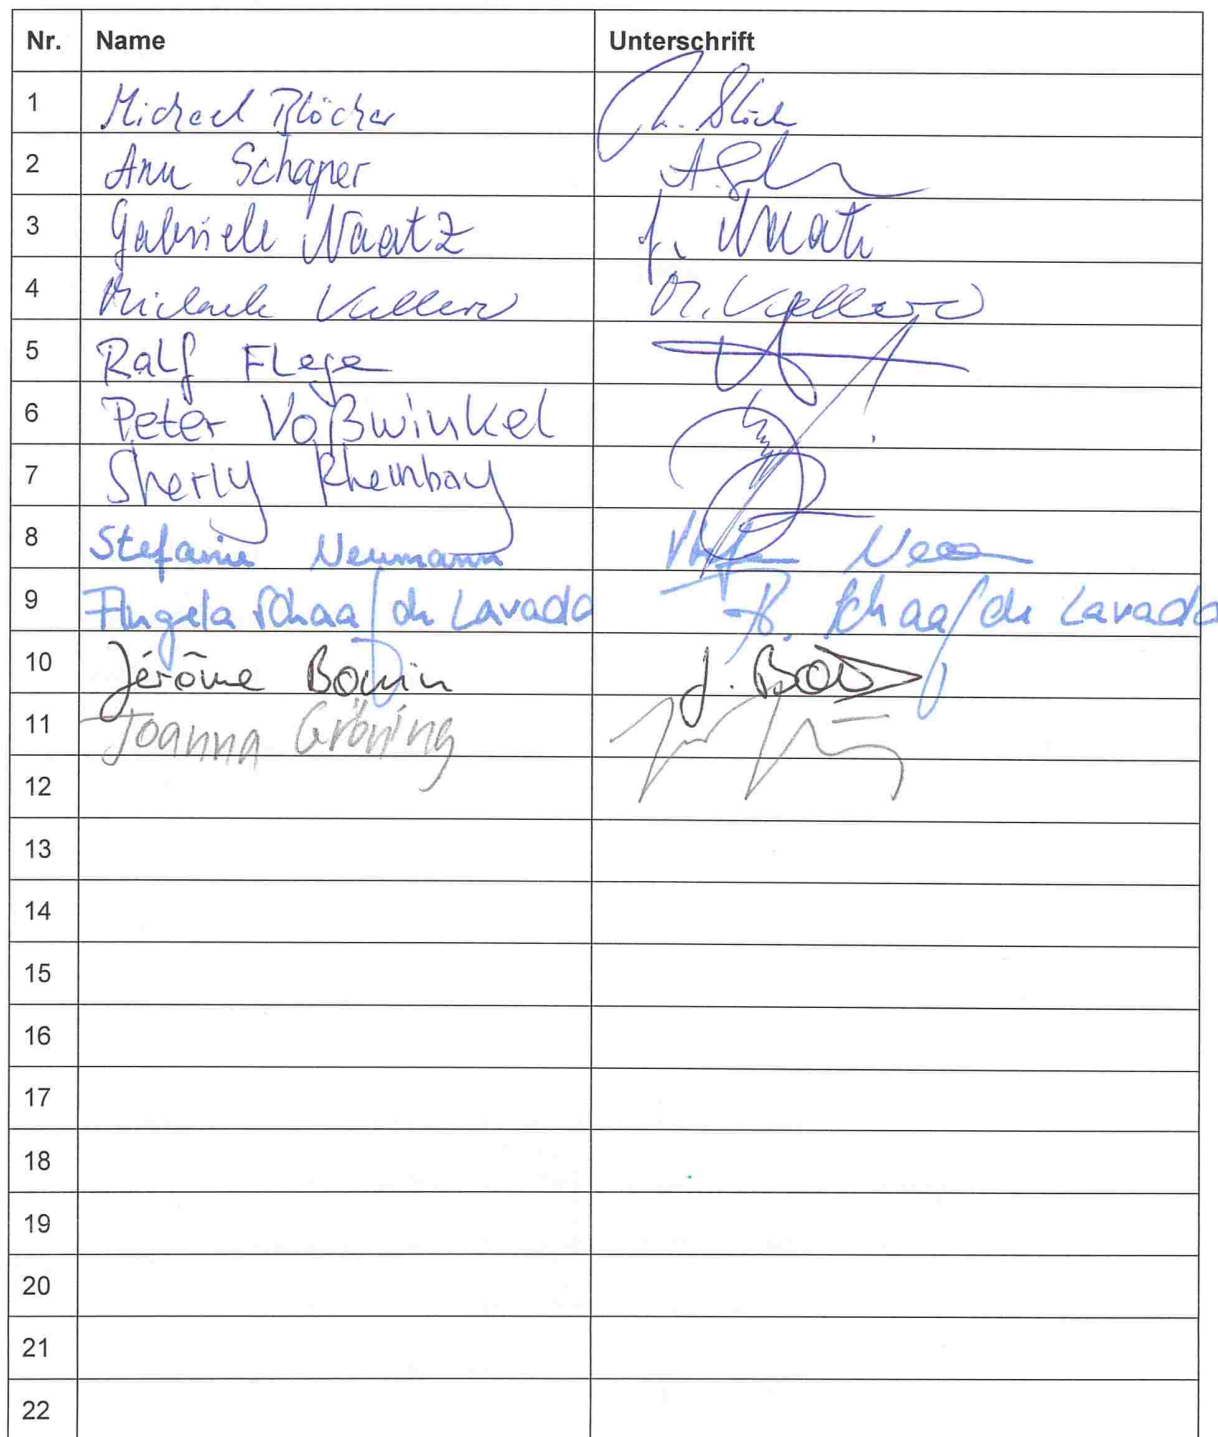 Nr. Name Unterschrift
1 Michael Blöcher M. Blöch
2 Ann Schaper A. Sch
3 Gabriele Naatz G. Naatz
4 Michaele Kellerer M. Kellerer
5 Ralf Flege
6 Peter Voßwinkel
7 Sherly Rheinbay
8 Stefanie Neumann
9 Angela Schaaf de Lavado A. Schaaf de Lavado
10 Jérôme Bonnin J. BO
11 Joanna Gröning
12
13
14
15
16
17
18
19
20
21
22